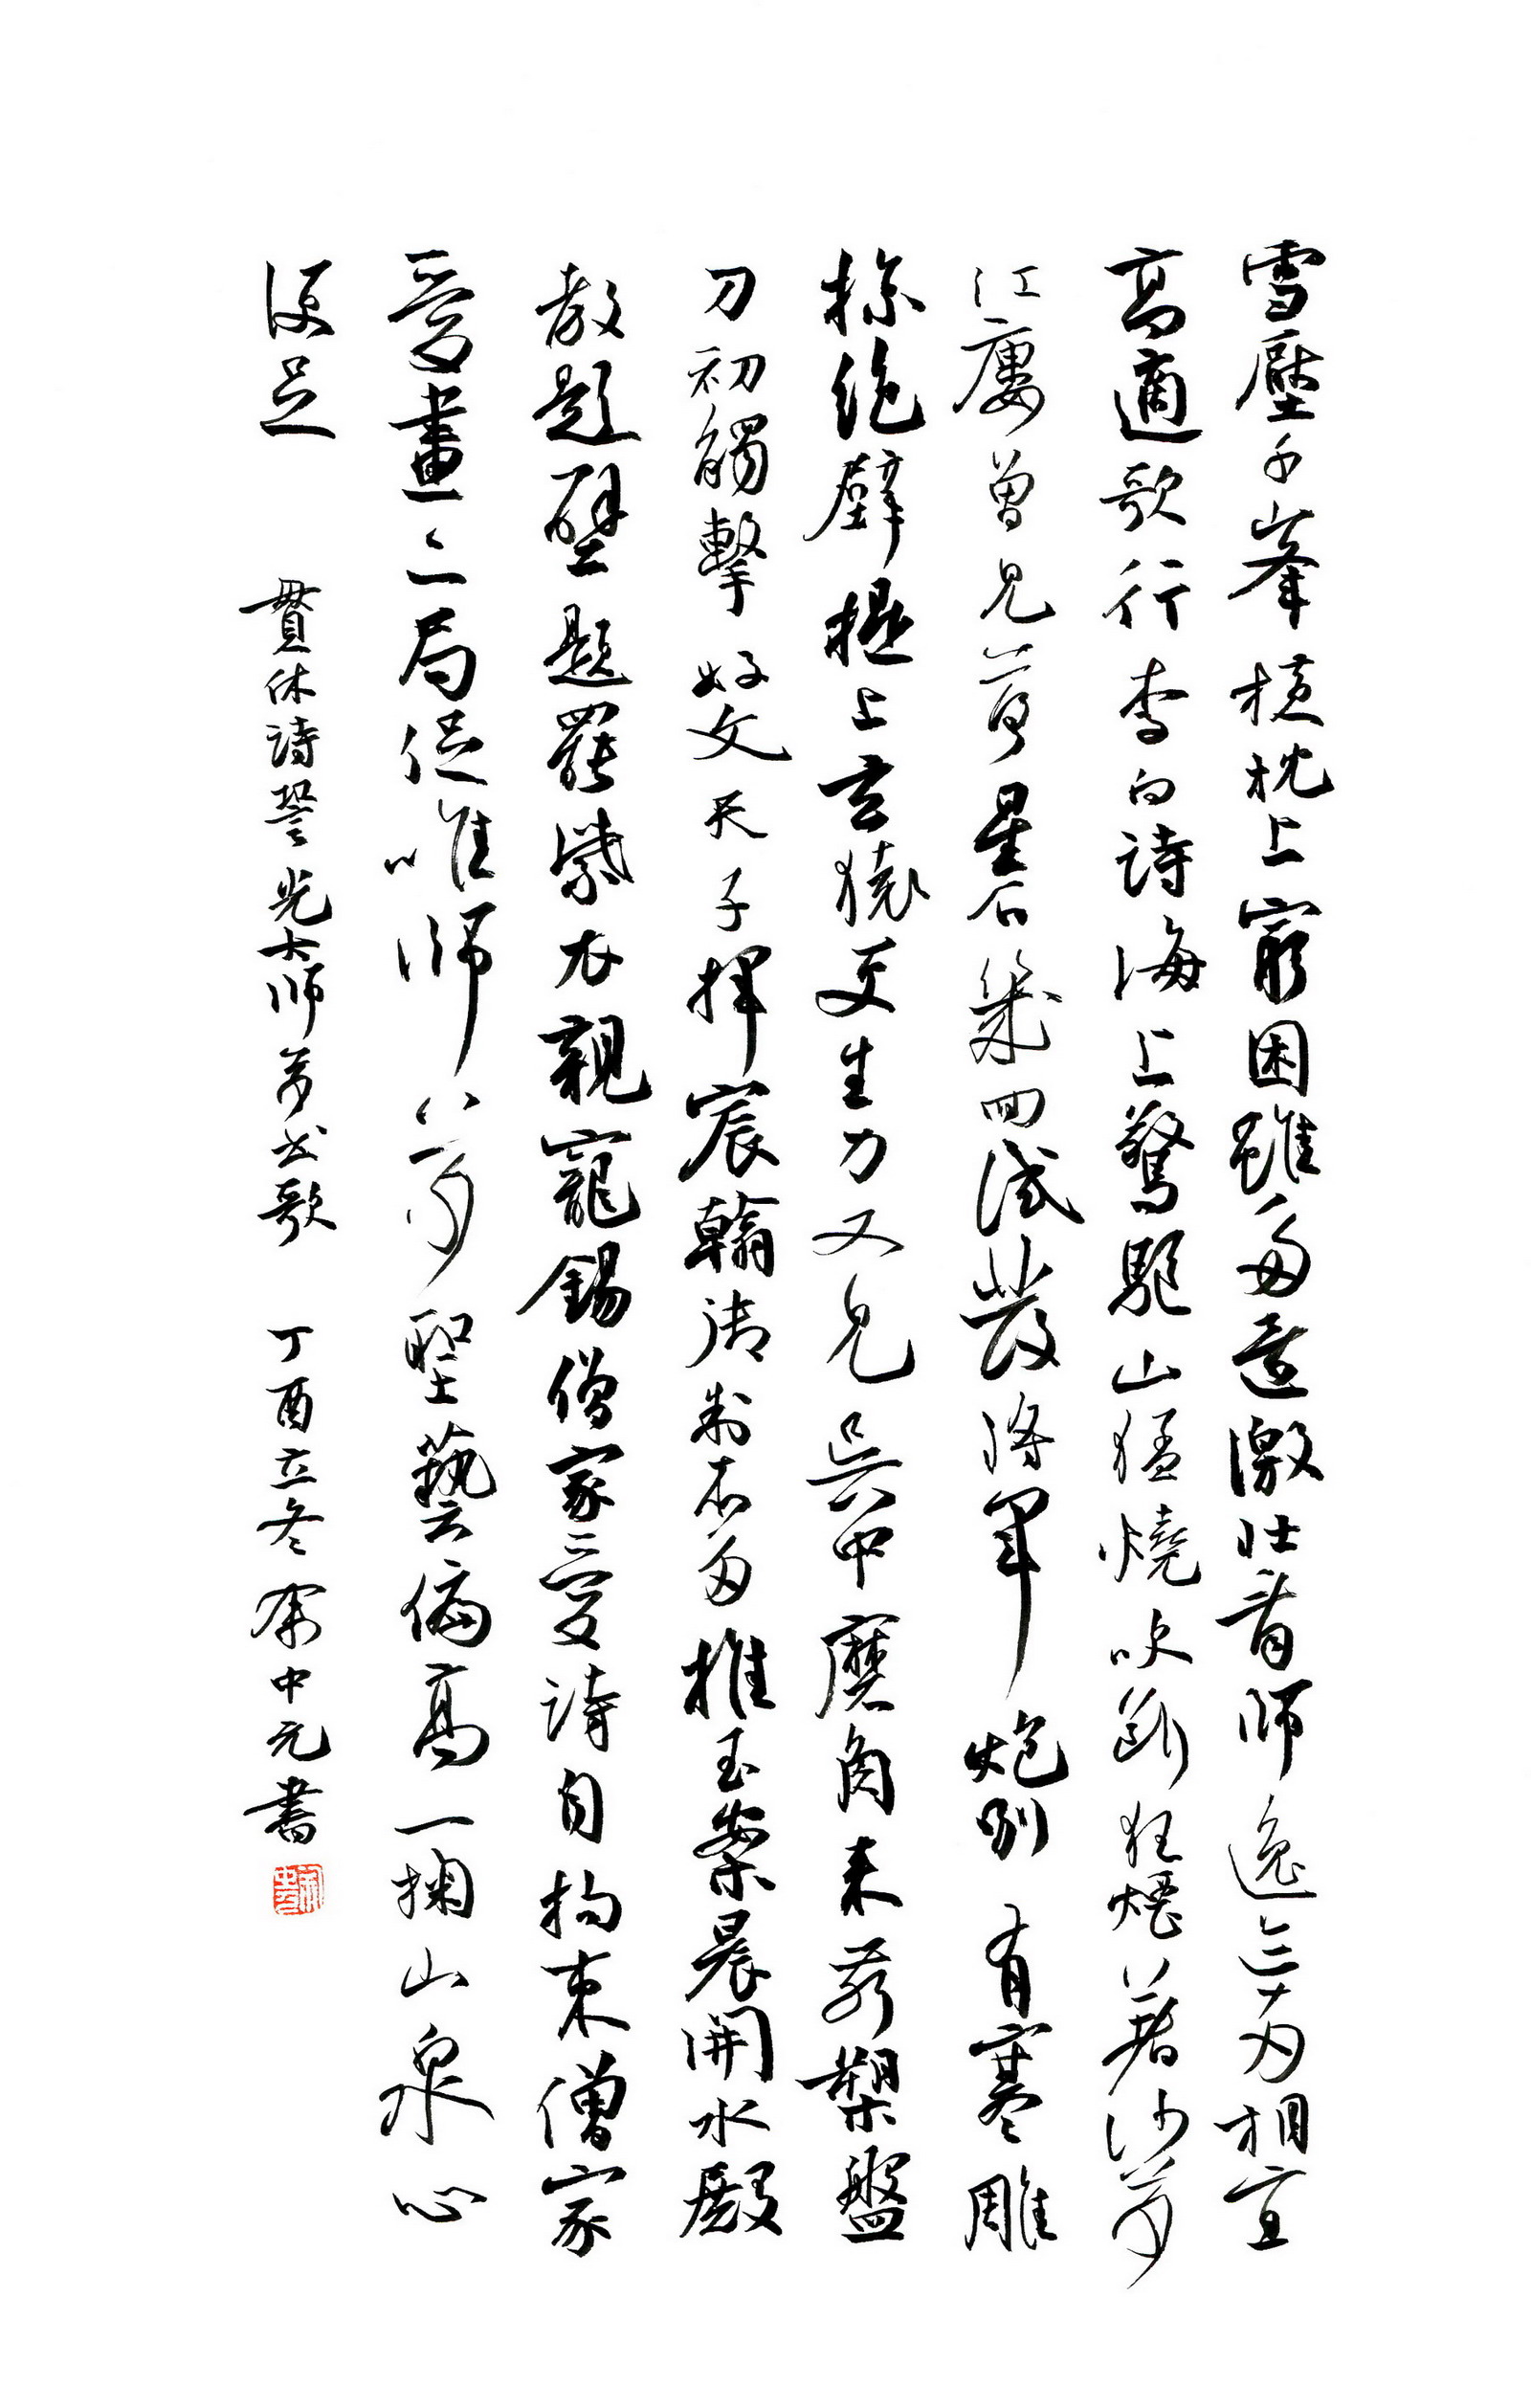 雪壓千峯橫枕上窮困雖多還激壯看師逸迹兩相宜
高適歌行李白詩海上驚驅山猛燒吹斷狂煙著沙草
江樓曾見落星石幾回試發將軍炮別有寒雕
掠絕壁提上玄猿更生力又見吳中磨角來舞槊盤
刀初觸擊好文天子揮宸翰御制本多推玉案晨開水殿
教題壁題罷紫衣親寵錫僧家愛詩自拘束僧家
愛畫亦局促唯師草聖藝偏高一掬山泉心
便足
貫休詩䛒光大師草書歌 丁酉立冬 宋中元書